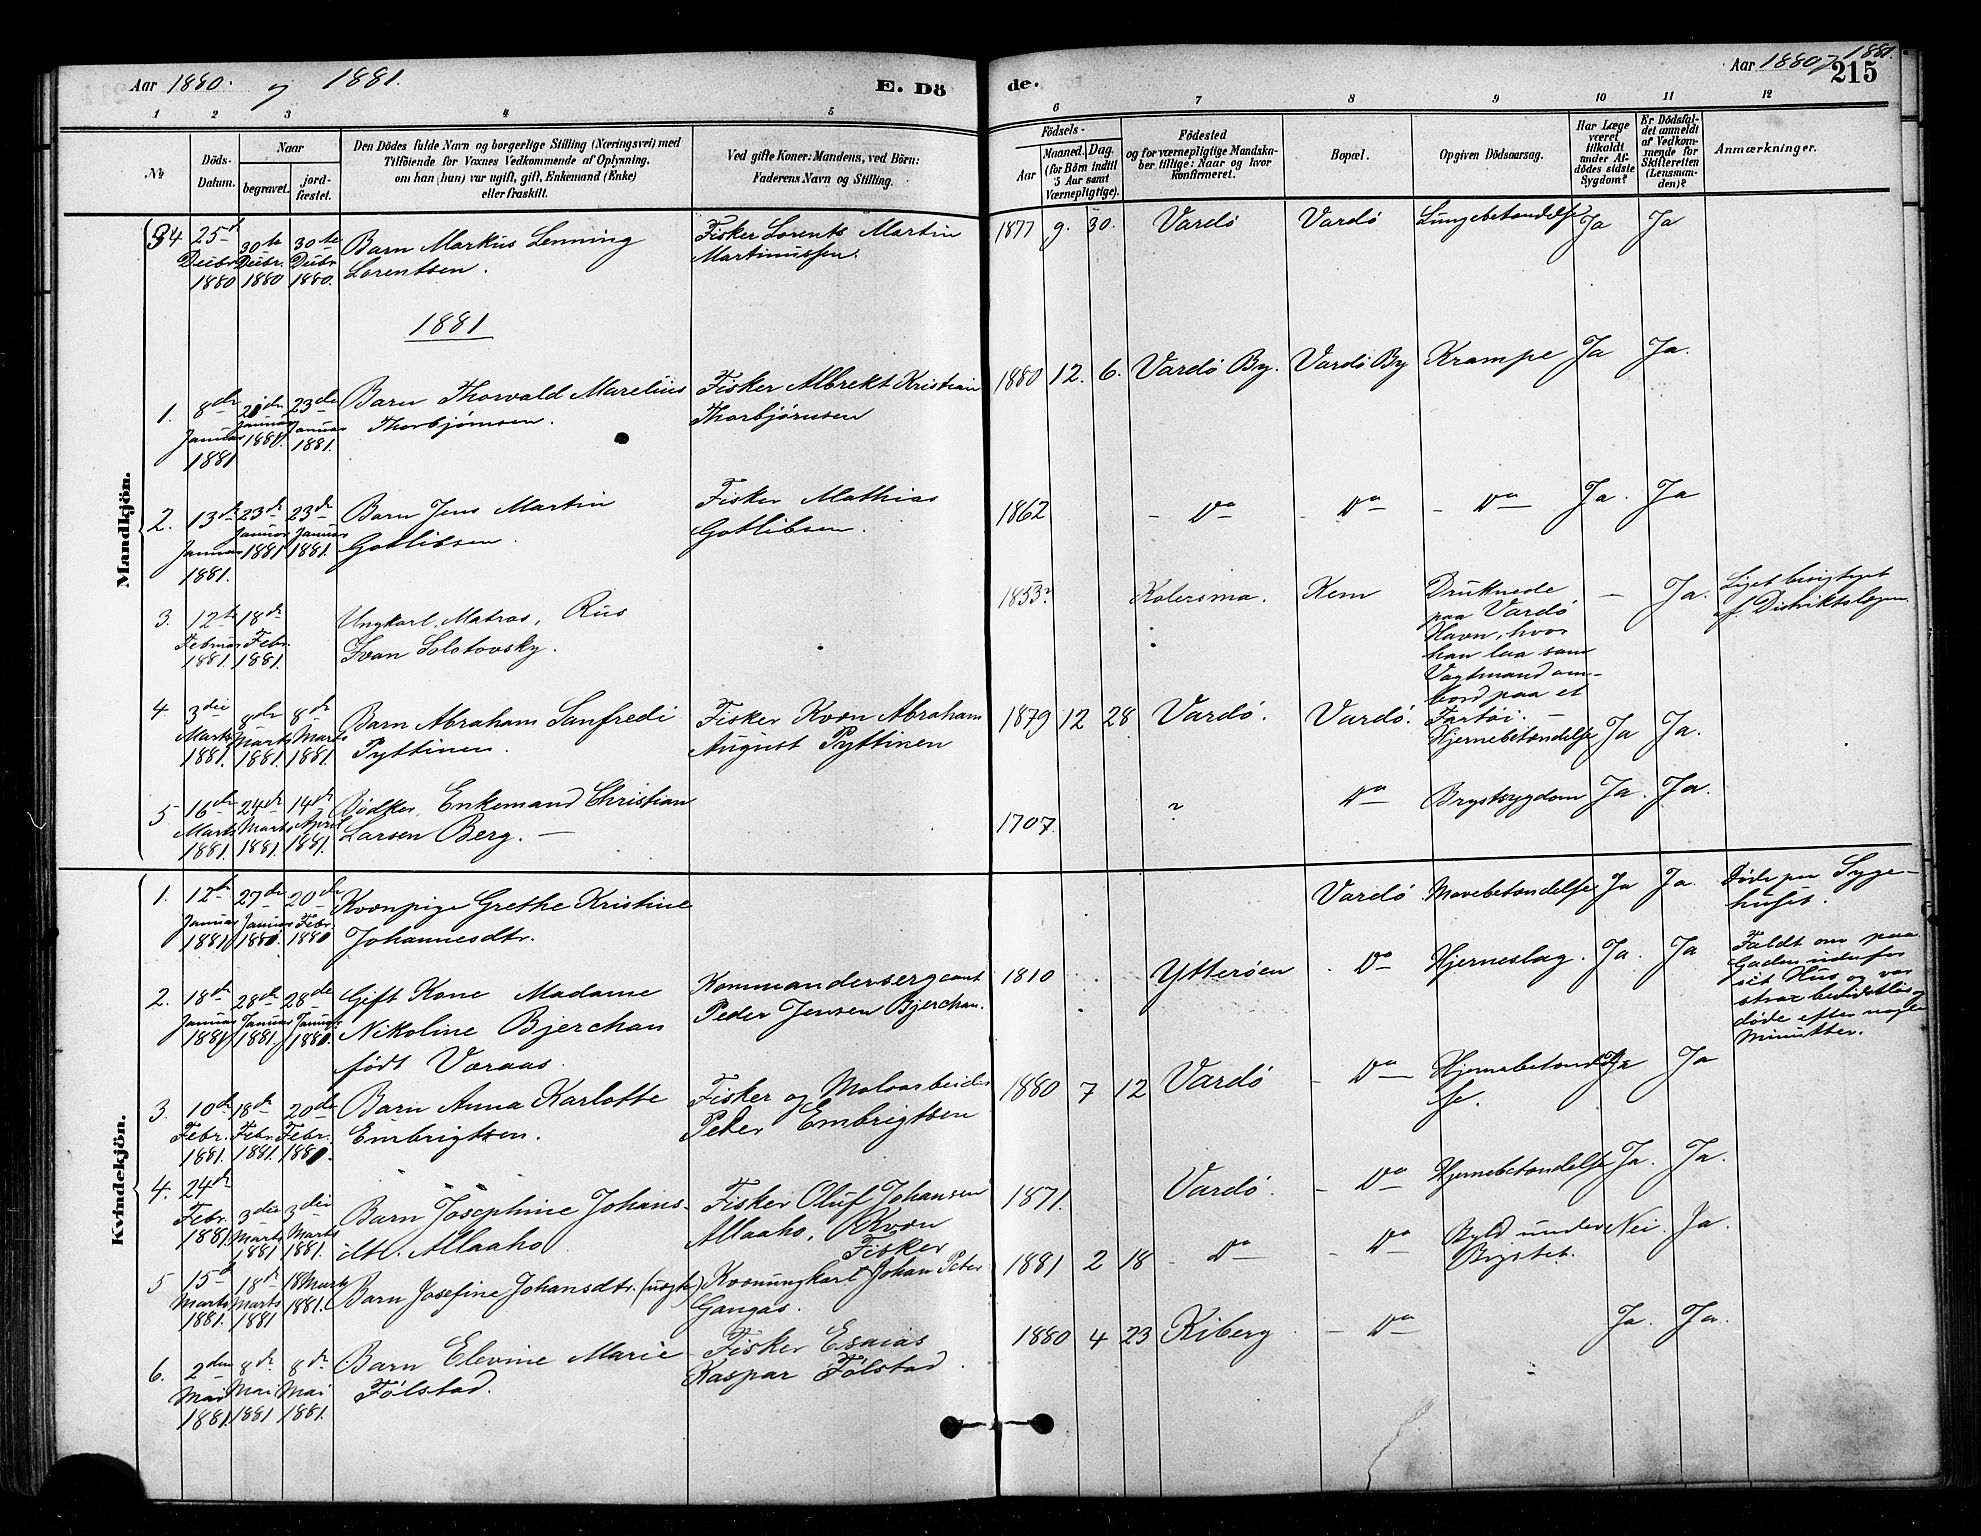 Aar 1880. og 1881. E. Döde. Aar 1880 og 1881. 215
1 2 3 4 5 6 7 8 9 10 11 12
No
Döds-Datum.
Naar
begravet.
jord-fæstet.
Den Dödes fulde Navn og borgerlige Stilling (Næringsvei) med
Tilföiende for Voxnes Vedkommende af Oplysning,
om han (hun) var ugift, gift, Enkemand (Enke)
eller fraskilt.
Ved gifte Koner: Mandens, ved Börn:
Faderens Navn og Stilling.
Födsels-
Aar
Maaned. Dag.
(for Börn indtil
5 Aar samt
Værnepligtige).
Födested
og for værnepligtige Mandska-
ber tillige: Naar og hvor
konfirmeret.
Bopæl.
Opgiven Dödsaarsag.
Har Læge
været
tilkaldt
under Af-
dödes sidste
Sygdom?
Er Dödsfal-
det anmeldt
af Vedkom-
mende for
Skifteretten
(Lensman-
den)?
Anmærkninger.
Mandkjön.
34 25de Decbr 1880 30te Decbr. 1880 30te Decbr 1880. Barn Markus Lenning Lorentsen. Fisker Lorents Martin Martinussen. 1877 9. 30. Vardö Vardö Lungebetændelse Ja Ja
1881
1. 8de Januar 1881 Januar 1881. 23de Januar 1881. Barn Thorvald Marelius Thorbjørnsen. Fisker Albrekt Kristian Thorbjørnsen 1880 12. 6. Vardö By. Vardö By Krampe Ja Ja.
2. 13de Januar 1881. 23de Januar 1881 23de Januar 1881. Barn Jens Martin Gotlibsen. Fisker Mathias Gotlibsen. 1862 - Do - Do - Do Ja. Ja
3. 12te Februar 1881. 18de Febr. 1881. Ungkarl, Matros, Rus Ivan Solotovsky. 1853? Kolersma. Kem Druknede paa Vardö Havn, hvor han laa som Vagtmand ombord paa et Fartøi. - Ja. Liget besigtiget af Distriktslægen
4. 3die Marts 1881. 8de Marts 1881. 8de Marts 1881 Barn Abraham Sanfredi Pyttinen. Fisker Kvæn Abraham August Pyttinen 1879 12 28 Vardö. Vardö. Hjernebetændelse Ja Ja.
5 16de Marts 1881. 24de Marts 1881. 14de April 1881. Bödker, Enkemand Christian Larsen Berg. - 1707. ? Do Brystsygdom Ja. Ja.
Kvindekjön.
1. 12te Januar 1881 27de Januar 1880. 20de Febr. 1880 Kvænpige Grethe Kristine Johannesdtr. Vardö Mavebetændelse Ja Ja. Døde paa Sygehuset.
2. 18de Januar 1881 28de Januar 1881. 28de Januar 1880. Gift Kone Madame Nikoline Bjerchan født Varaas. Kommandersergeant Peder Jensen Bjerchan. 1810 Ytterøen - Do Hjerneslag. Ja. Ja Faldt om paa Gaden udenfor sit Hus og var strax bevidstløs, døde efter nogle Minutter.
3. 10de Febr. 1881. 18de Febr. 1881. 20de Febr. 1880. Barn Anna Karlotte Embrigtsen. Fisker og Moloarbeider Peter Embrigtsen 1880 7 12 Vardö - Do Hjernebetændelse. Ja Ja
4. 24de Febr. 1881. 3die Marts 1881 3die Marts 1881. Barn Josephine Johansdtr. Allaaho Fisker Oluf Johansen Allaaho, Kvæn 1871. Vardö. - Do Hjernebetændelse Ja. Ja.
5 15de Marts 1881. 18de Marts 1881 18 Marts 1881. Barn Josefine Johansdtr. (uægte) Fisker Kvænungkarl Johan Peter Gangas. 1881 2 18 - Do - Do Byld under Brystet. Nei. Ja.
6. 2den Mai 1881. 8de Mai 1881 8de Mai 1881. Barn Elevine Marie Følstad. Fisker Esaias Kaspar Følstad. 1880 4 23 Kiberg - Do Ja. Ja.